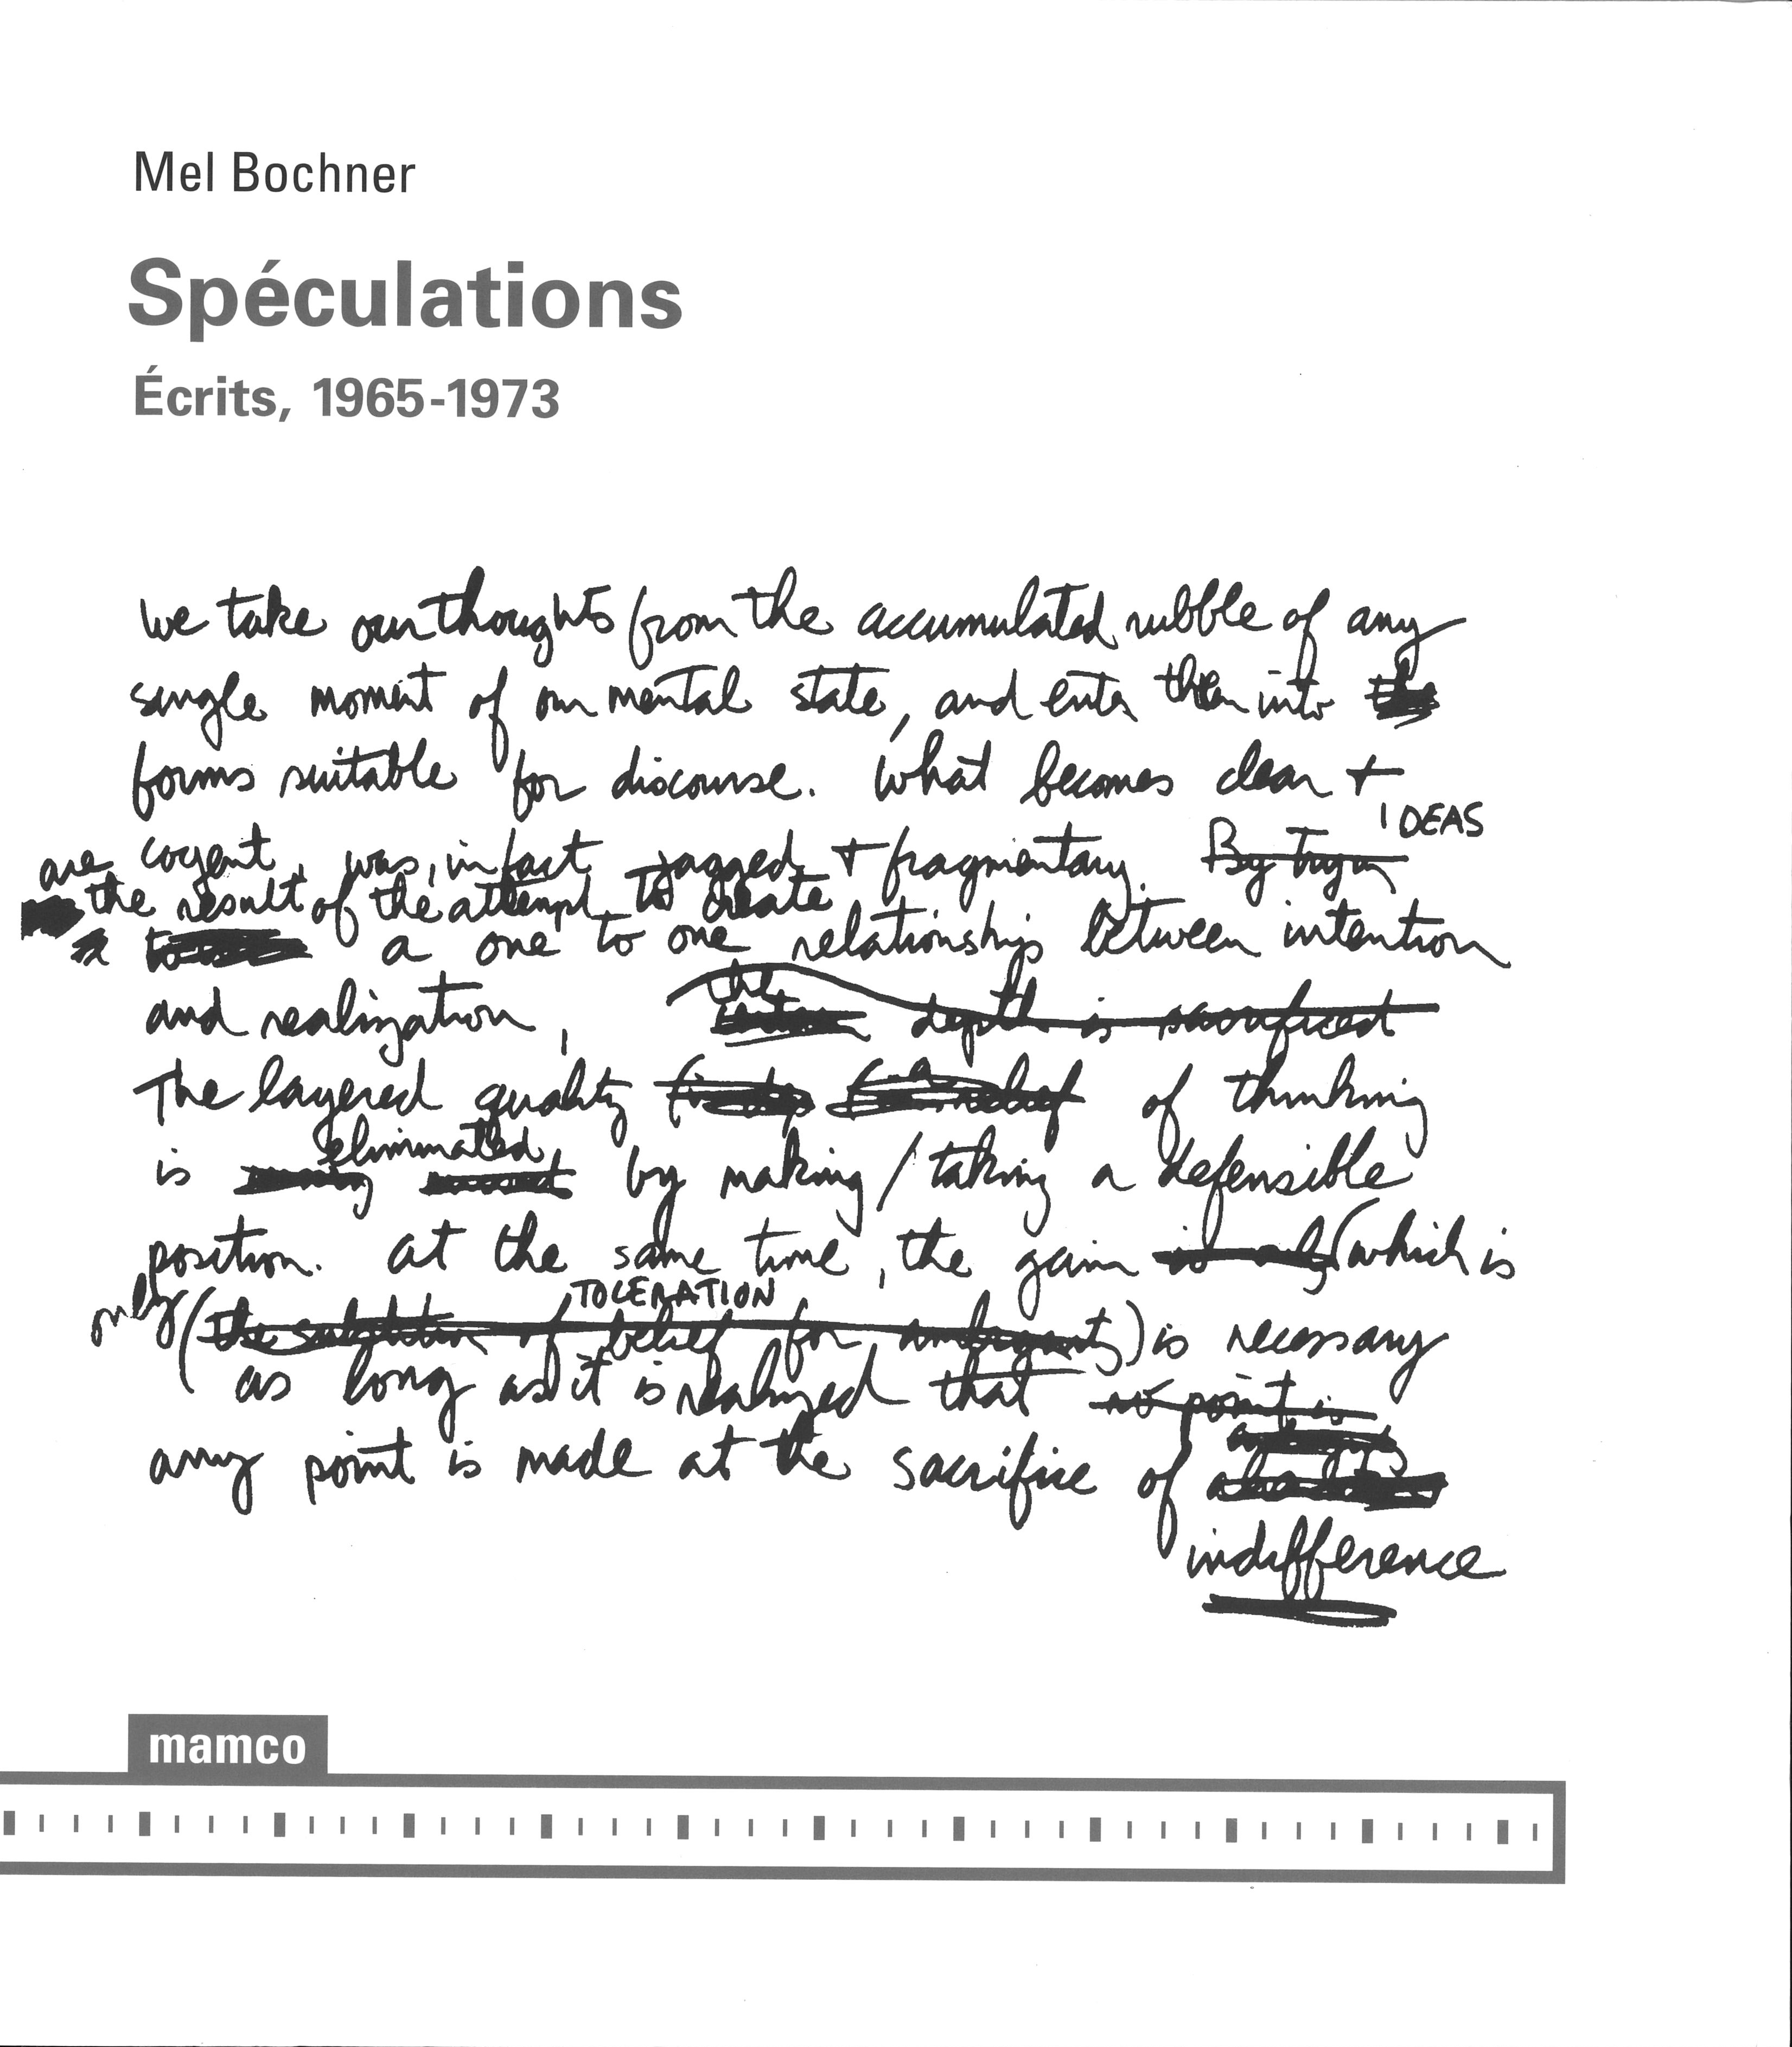 Mel Bochner
Spéculations
Écrits, 1965-1973
We take our thoughts from the accumulated rubble of any
single moment of our mental state, and enter them into the
forms suitable for discourse. What becomes clear +
IDEAS
cogent, was, in fact jagged + fragmentary. By trying
are
the result of the attempt to create
a one to one relationship between intention
and realization, the depth is sacrificed
The layered quality of thinking
eliminated
is by making / taking a defensible
position. At the same time, the gain is only (which is
TOLERATION
only (the substitution of belief for ambiguity) is necessary
as long as it is realized that no point is
any point is made at the sacrifice of
indifference
mamco